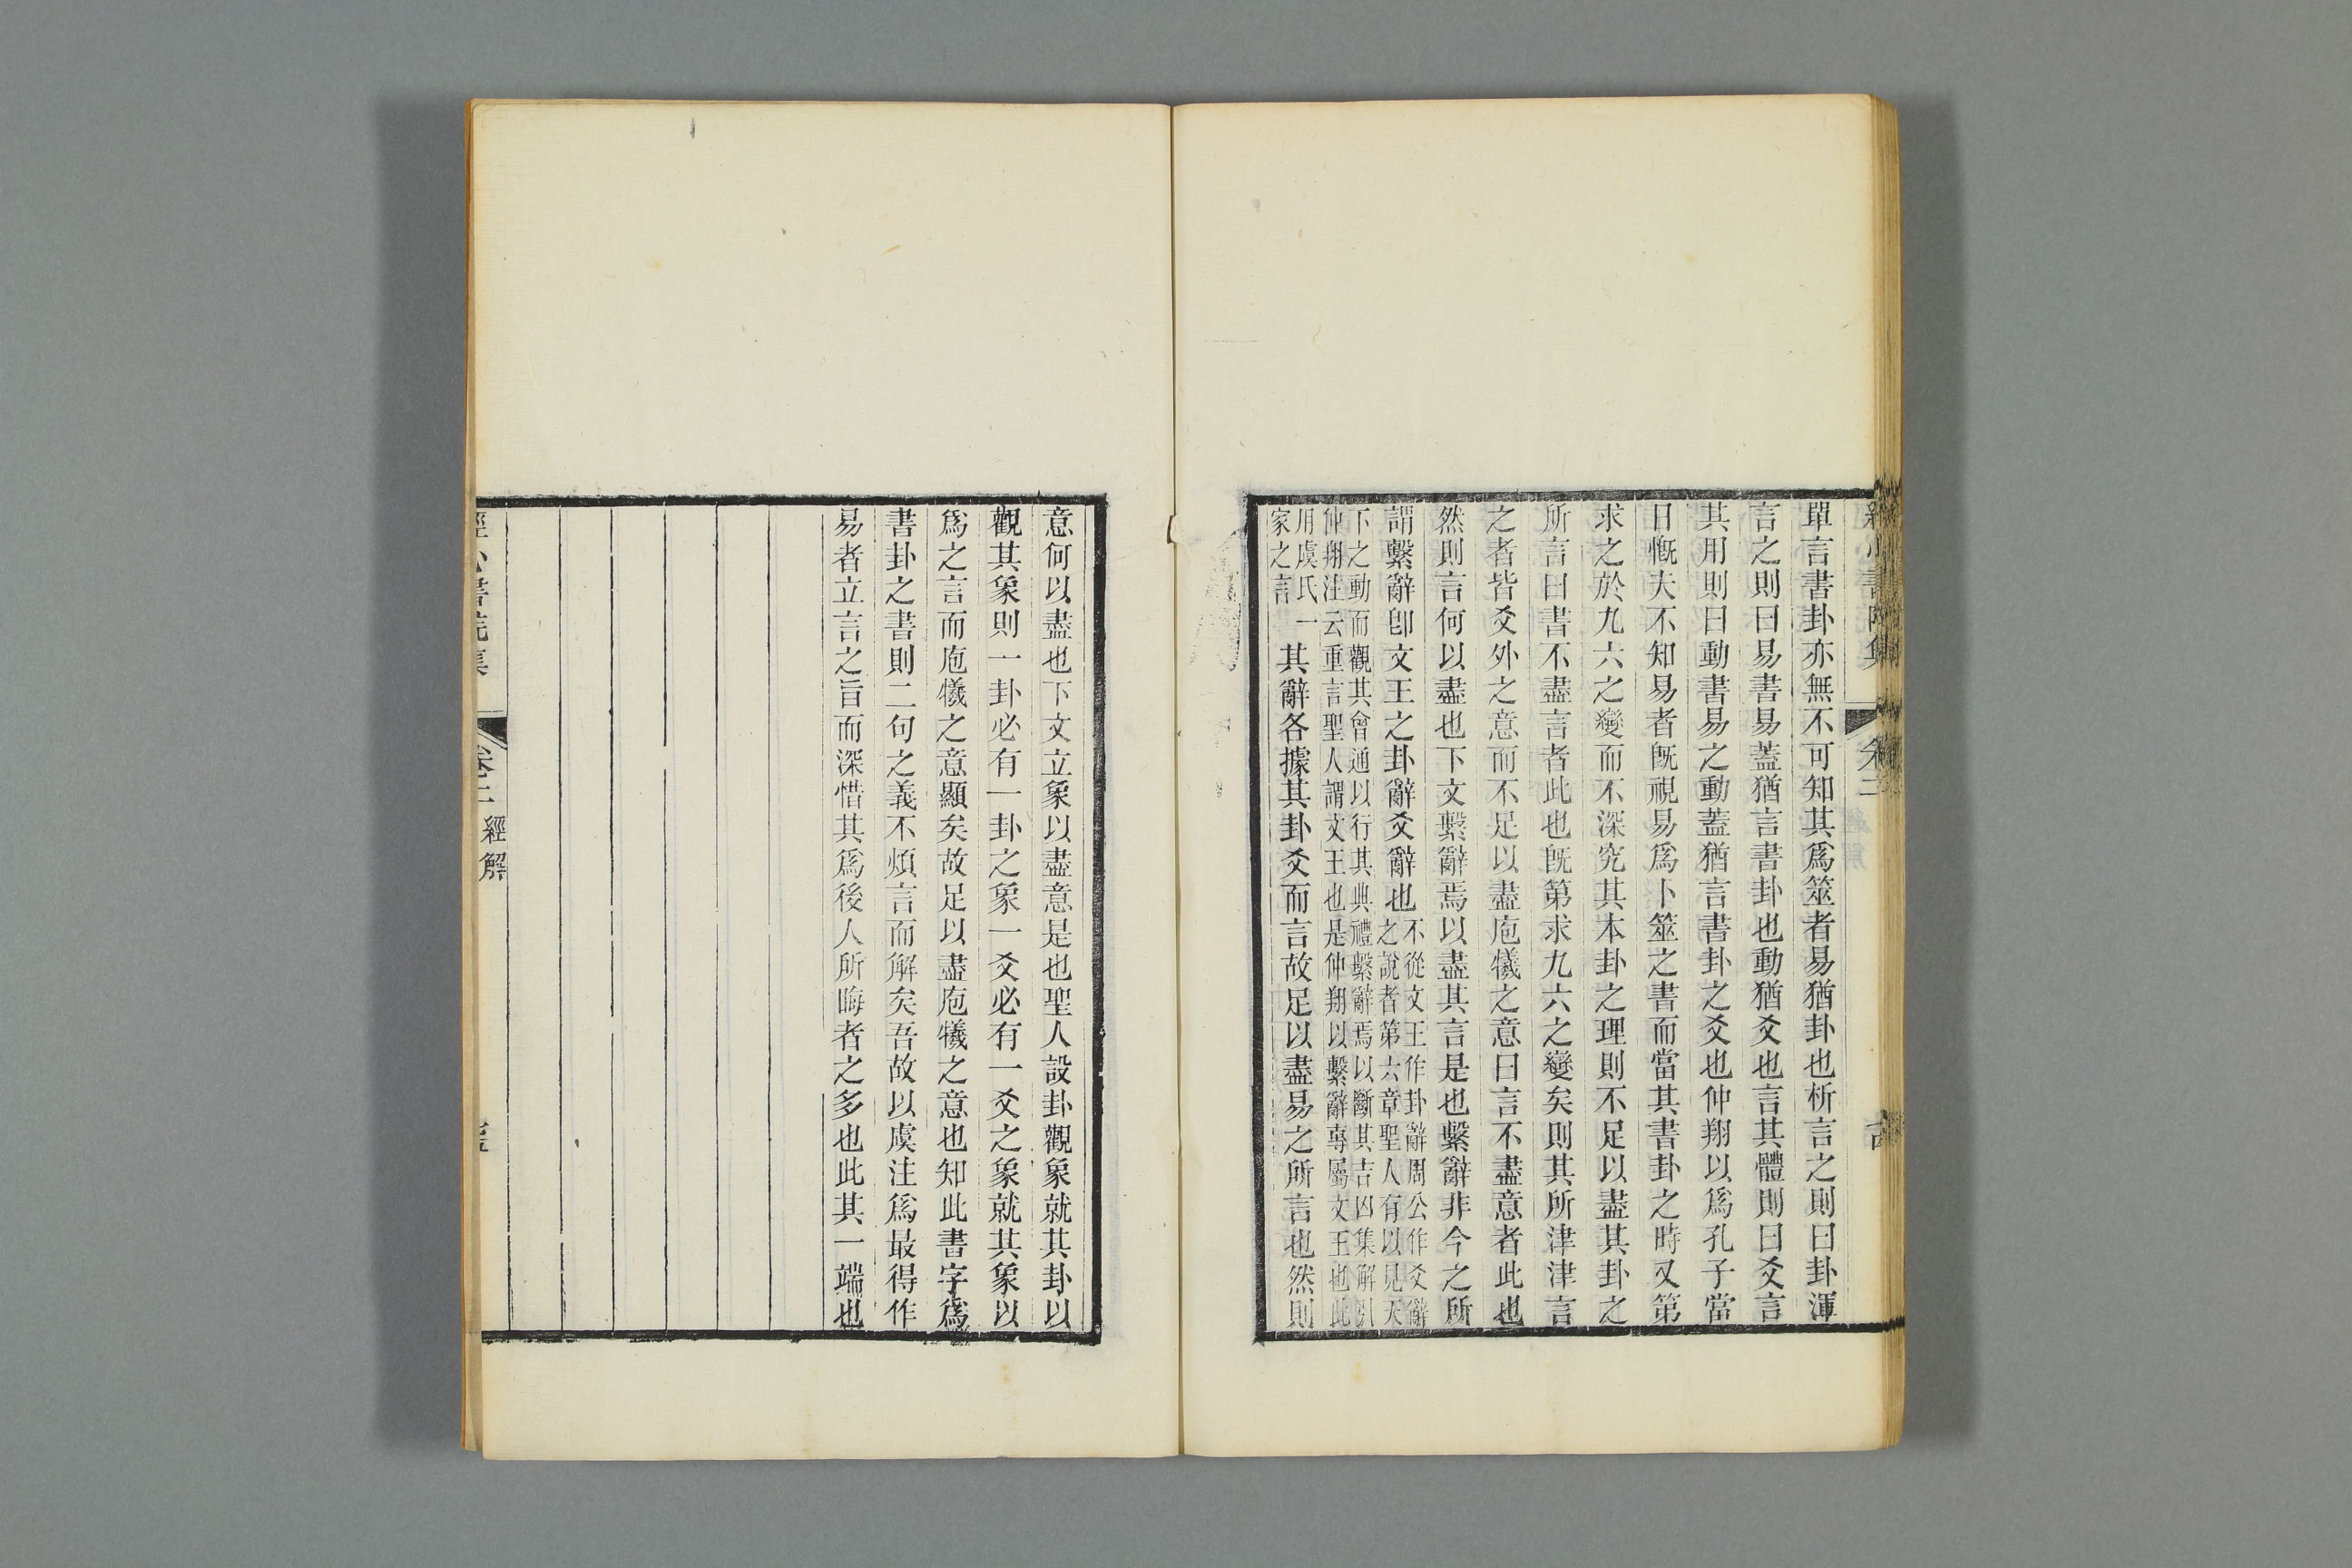 單言書卦亦無不可知其爲筮者易猶卦也析言之則曰卦渾
言之則曰易書易蓋猶言書卦也動猶爻也言其體則曰爻言
其用則曰動書易之動蓋猶言書卦之爻也仲翔以爲孔子當
日慨夫不知易者旣視易爲卜筮之書而當其書卦之時又第
求之於九六之變而不深究其本卦之理則不足以盡其卦之
所言曰書不盡言者此也旣第求九六之變矣則其所津津言
之者皆爻外之意而不足以盡庖犧之意曰言不盡意者此也
然則言何以盡也下文繫辭焉以盡其言是也繫辭非今之所
謂繫辭卽文王之卦辭爻辭也
不從文王作卦辭周公作爻辭
之說者第六章聖人有以見天
下之動而觀其會通以行其典禮繫辭焉以斷其吉凶集解引
仲翔注云重言聖人謂文王也是仲翔以繫辭專屬文王也此
用虞氏一
家之言
其辭各據其卦爻而言故足以盡易之所言也然則
意何以盡也下文立象以盡意是也聖人設卦觀象就其卦以
觀其象則一卦必有一卦之象一爻必有一爻之象就其象以
爲之言而庖犧之意顯矣故足以盡庖犧之意也知此書字爲
書卦之書則二句之義不煩言而解矣吾故以虞注爲最得作
易者立言之旨而深惜其爲後人所晦者之多也此其一端也
卷二 經解